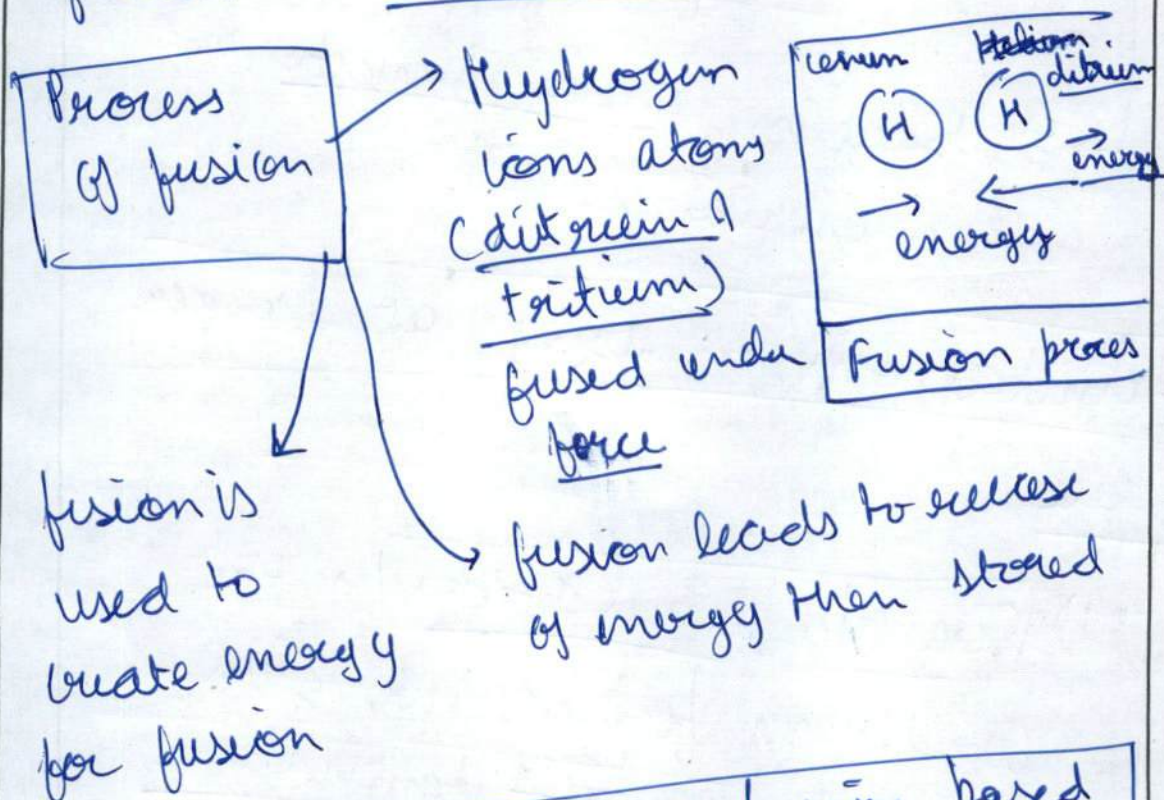 Process
of fusion
Hydrogen
ions atoms
(ditriein /
tritium)
fused unde
force
Helium
ditrium
H
H
energy
energy
Fusion proces
fusion is
used to
create energy
for fusion
fusion leads to release
of energy then stored
based